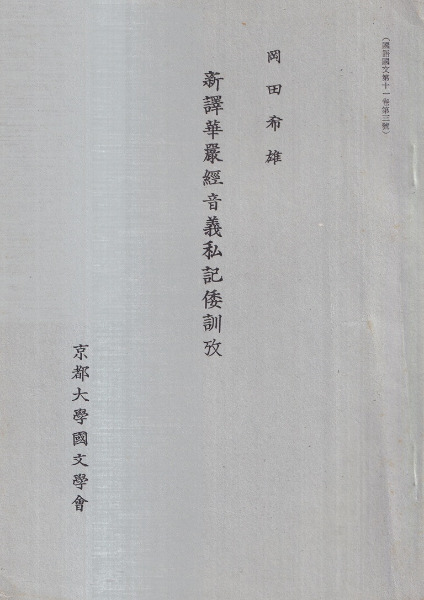 (國語國文第十一卷第三號)
岡田希雄
新譯華嚴經音義私記倭訓攷
京都大學國文學會